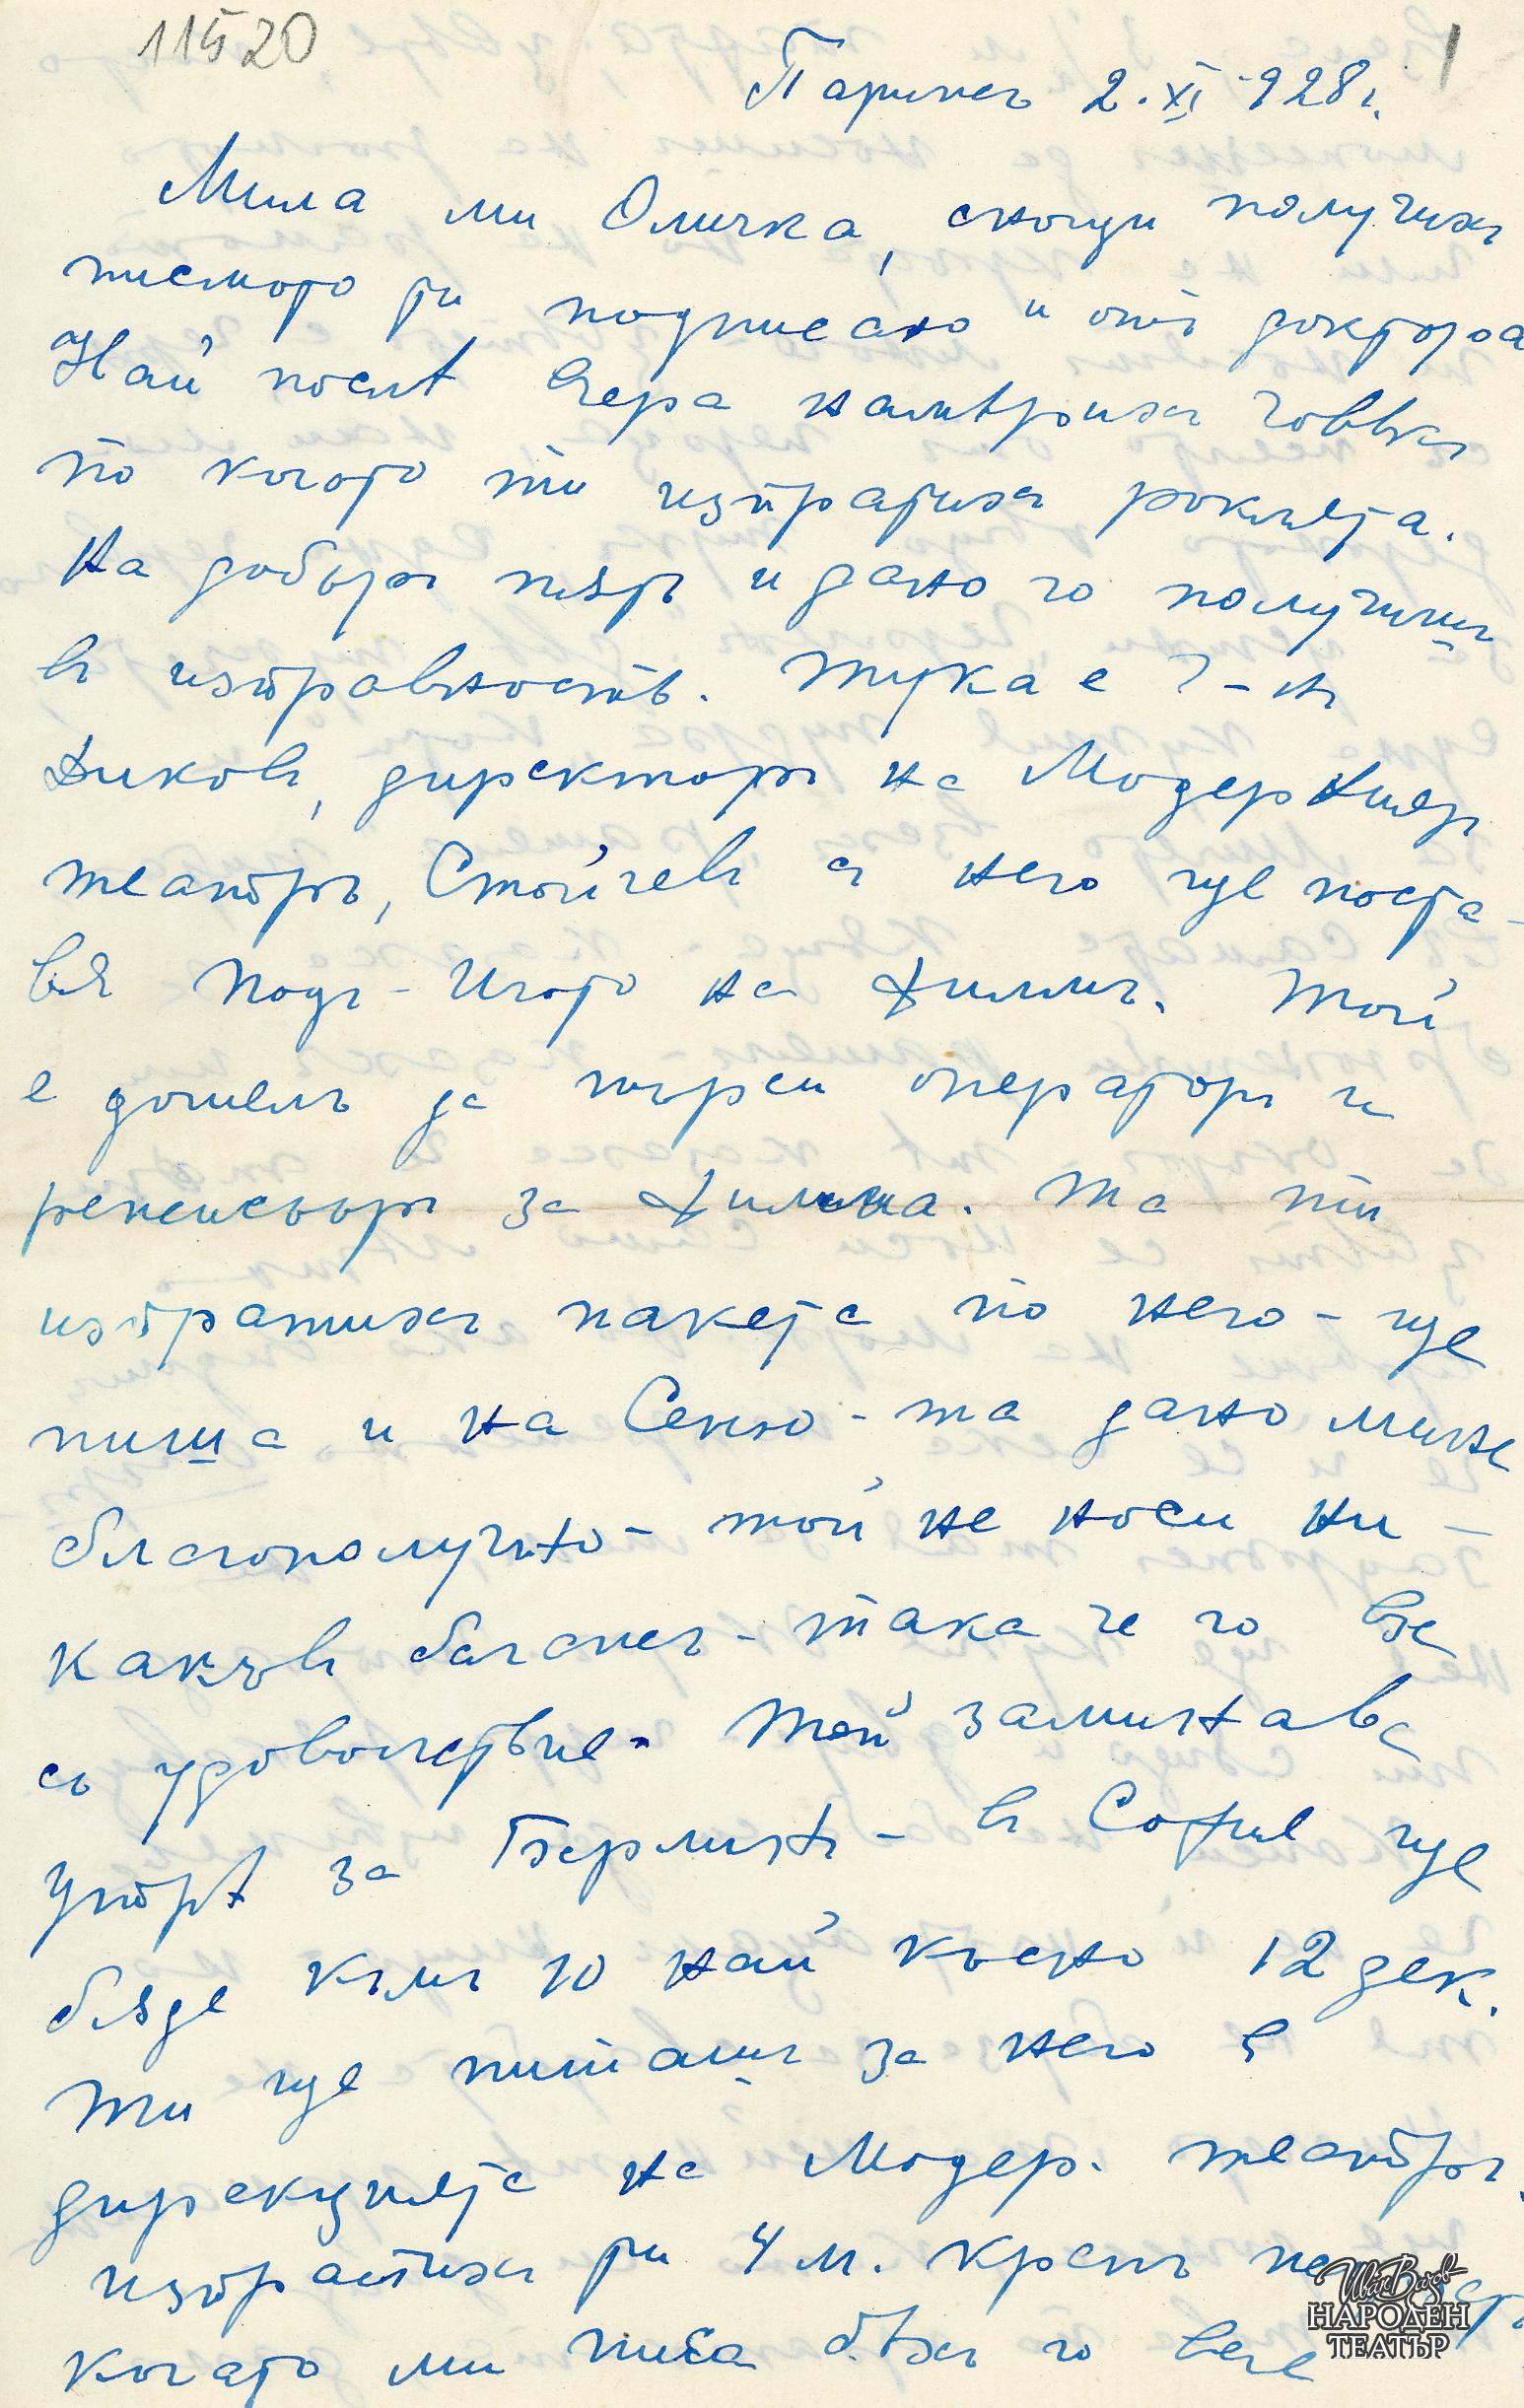 11520
1
Парижъ 2.XI 928 г.
Мила ми Оличка, снощи получихъ
писмото ти подписано и отъ доктора
Най после вчера намѣрихъ човѣкъ
по когото ти изпратихъ роклята.
На добъръ пѫть и дано го получишъ
въ изправность. Тука е г-нъ
Диковъ, директоръ на Модерния
театръ, Стойчевъ съ него ще поста-
вя Подъ-Игото на филмъ. Той
е дошелъ да търси операторъ и
режисьоръ за филма. Та ти
изпратихъ пакета по него - ще
пиша и на Сенко - та дано мине
благополучно - той не носи ни-
какъвъ багажъ - така че го взе
съ удоволствие. Той заминава
утрѣ за Берлинъ - въ София ще
бѫде къмъ 10 най късно 12 дек.
Ти ще питашъ за него въ
дирекцията на Модер. театръ.
изпратихъ ти 4 м. крепъ
когато ми писа бѣхъ го вече
Иван Вазов
НАРОДЕН
ТЕАТЪР